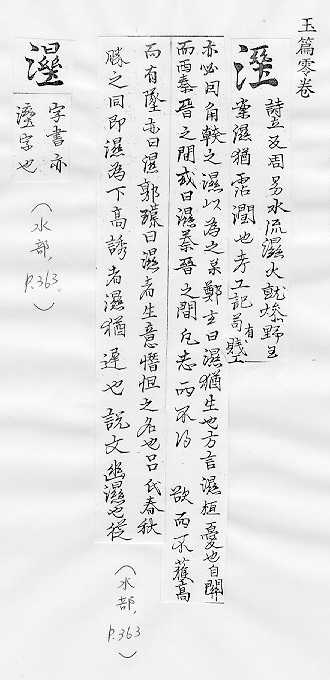 玉篇零卷
溼 詩立反周易水流濕火就燥野王
案濕猶霑潤也考工記苟有賤工
亦必因角幹之濕以為之柔鄭玄曰濕猶生也方言濕桓憂也自關
而西秦晉之間或曰濕秦晉之間凡志而不得欲而不獲高
而有墜亦曰濕郭璞曰濕者生意憯怛之名也呂氏春秋
勝之同即濕為下高誘者濕猶遲也說文幽濕也從
(水部,
P.363)
濕 字書亦
溼字也
(水部
P.363.)